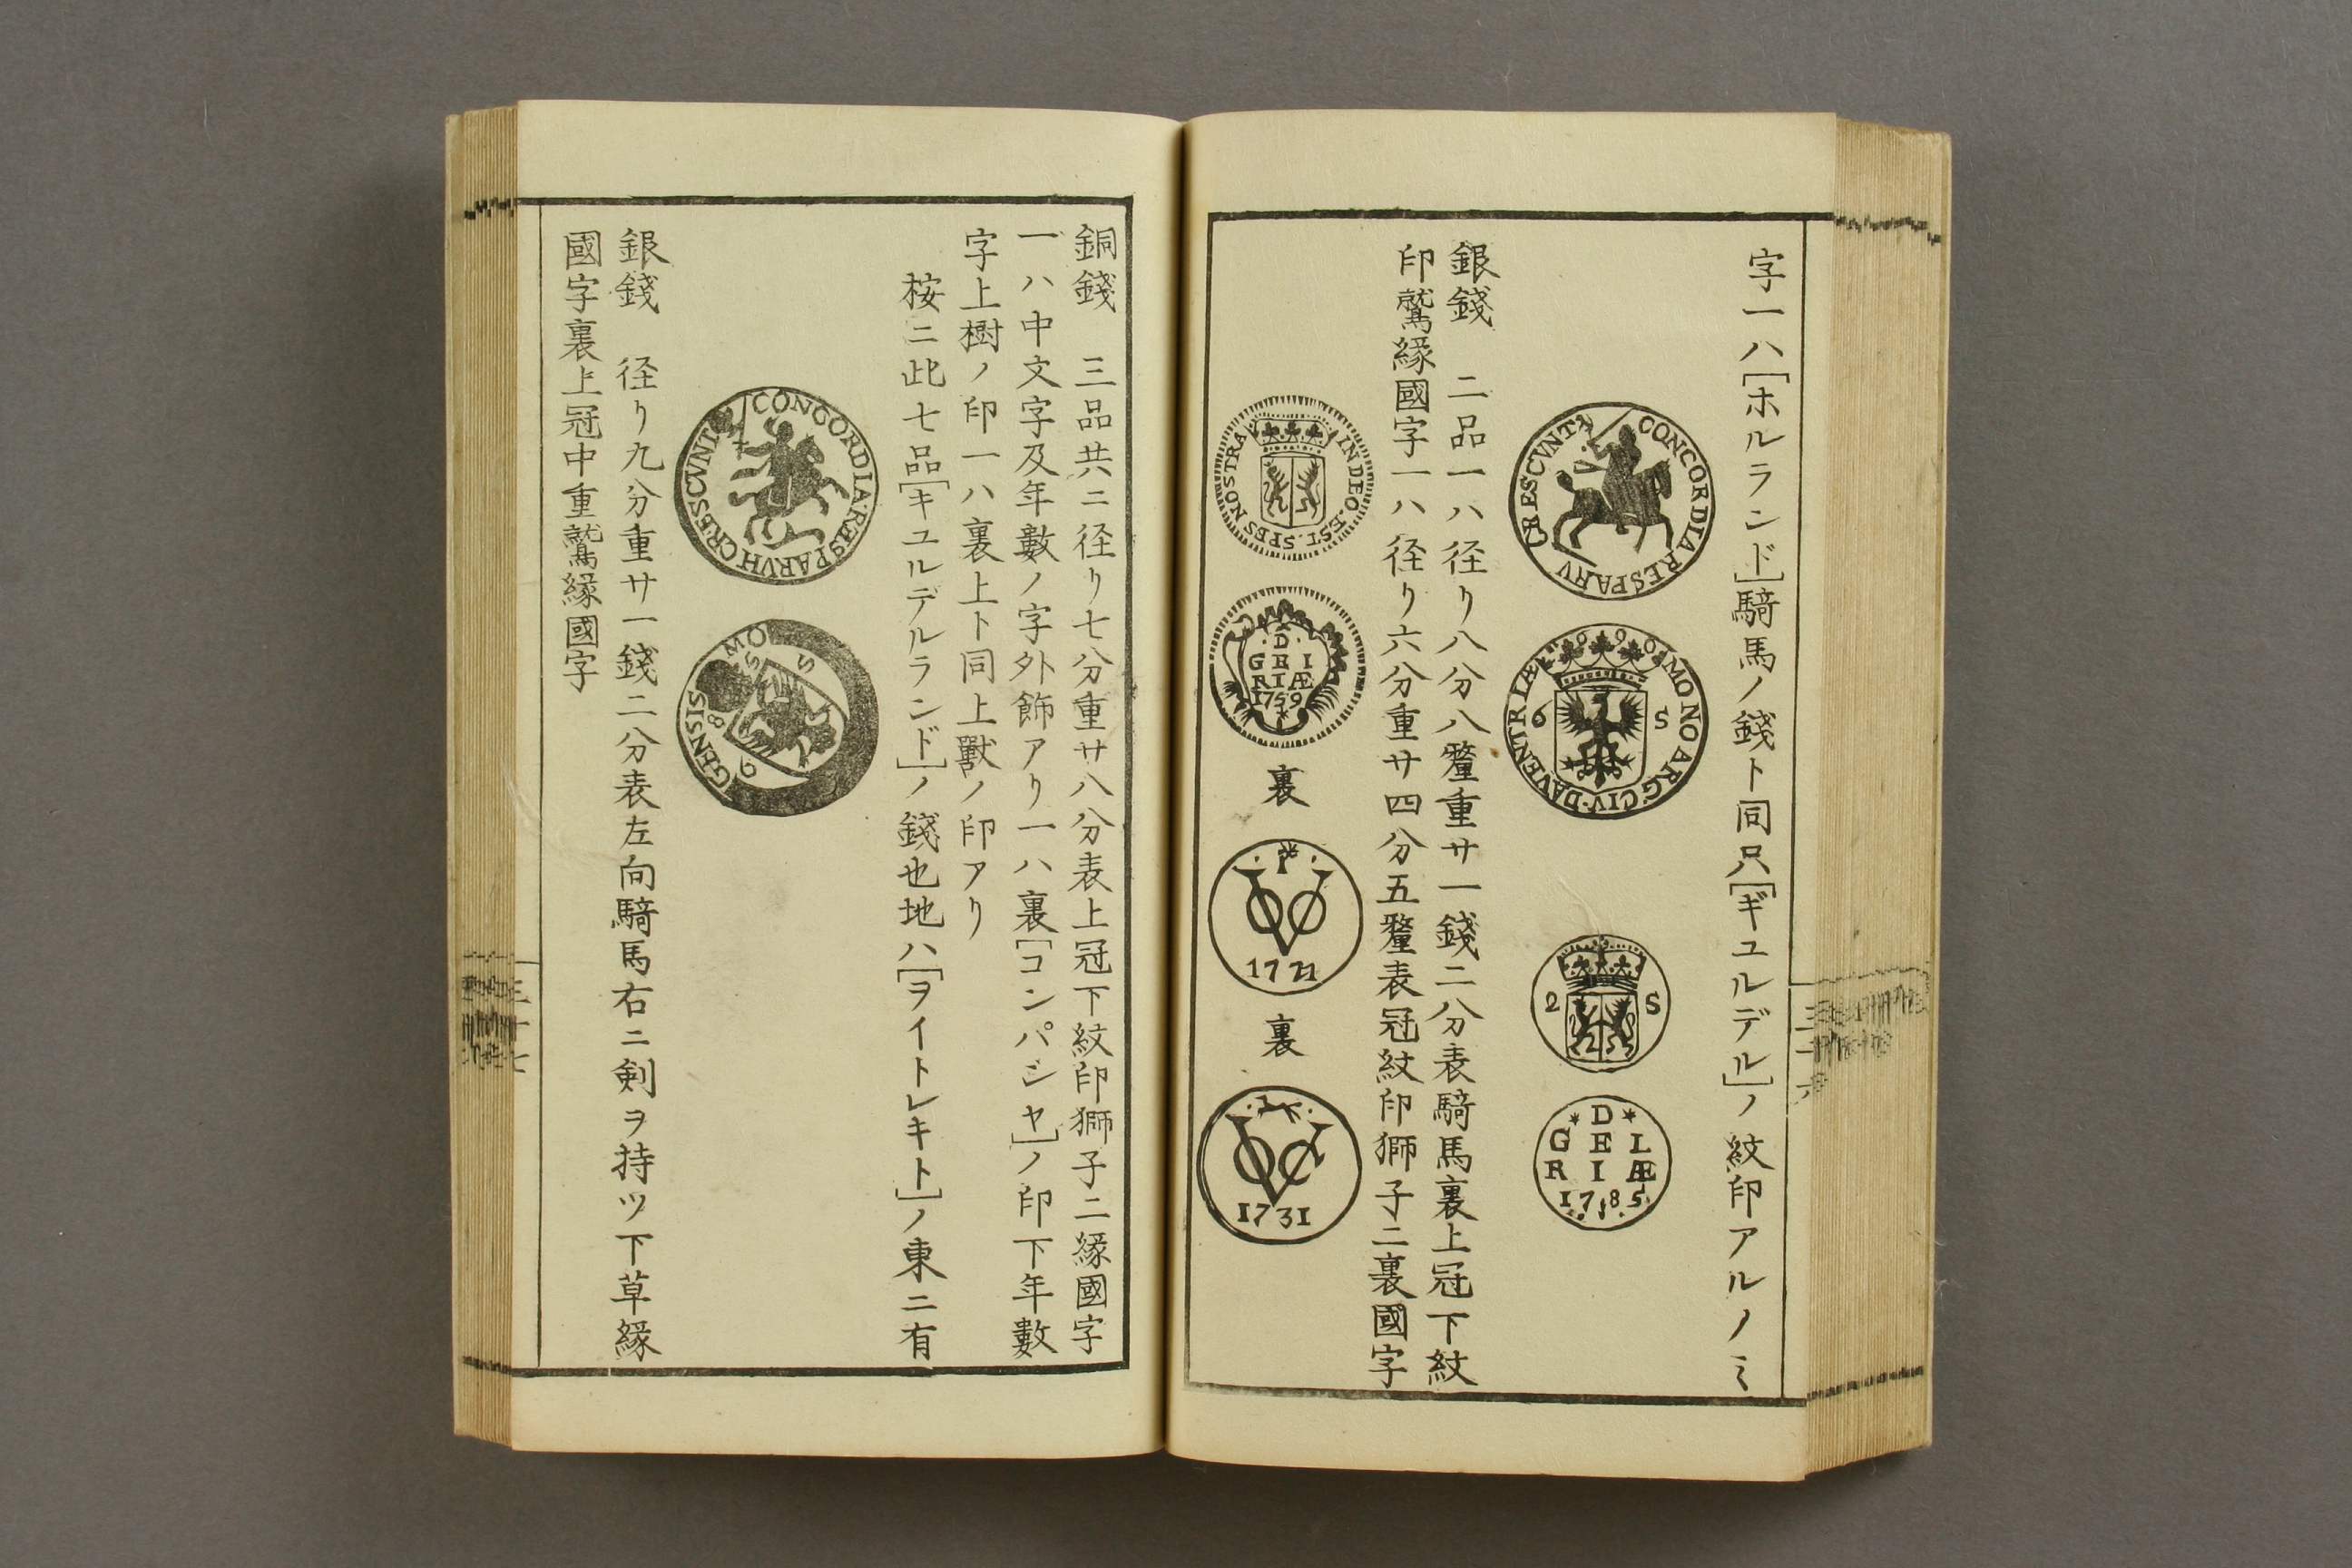 字一ハ[ホルランド]騎馬ノ錢ト同只[ギュルデル]ノ紋印アルノミ
CONCORDIA RESPARV CRESCVNT
MO NO ARG CIV DAVENTRIÆ
6 S
2 S
D
G E I
R I Æ
1785
銀錢 二品一ハ径リ八分八釐重サ一錢二分表騎馬裏上冠下紋
印鷲縁國字一ハ径リ六分重サ四分五釐表冠紋印獅子二裏國字
IN DEO EST SPES NOSTRA
D
G E I
R I Æ
1759
裏
1721
裏
1731
三十六
銅錢 三品共ニ径リ七分重サ八分表上冠下紋印獅子二縁國字
一ハ中文字及年數ノ字外飾アリ一ハ裏[コンパシヤ]ノ印下年數
字上樹ノ印一ハ裏上ト同上獸ノ印アリ
桉ニ此七品[キュルデルランド]ノ錢也地ハ[ヲイトレキト]ノ東ニ有
CONCORDIA RESPARVH CRESCVNT
MO GENSIS
銀錢 径リ九分重サ一錢二分表左向騎馬右ニ剣ヲ持ツ下草縁
國字裏上冠中重鷲縁國字
三十七